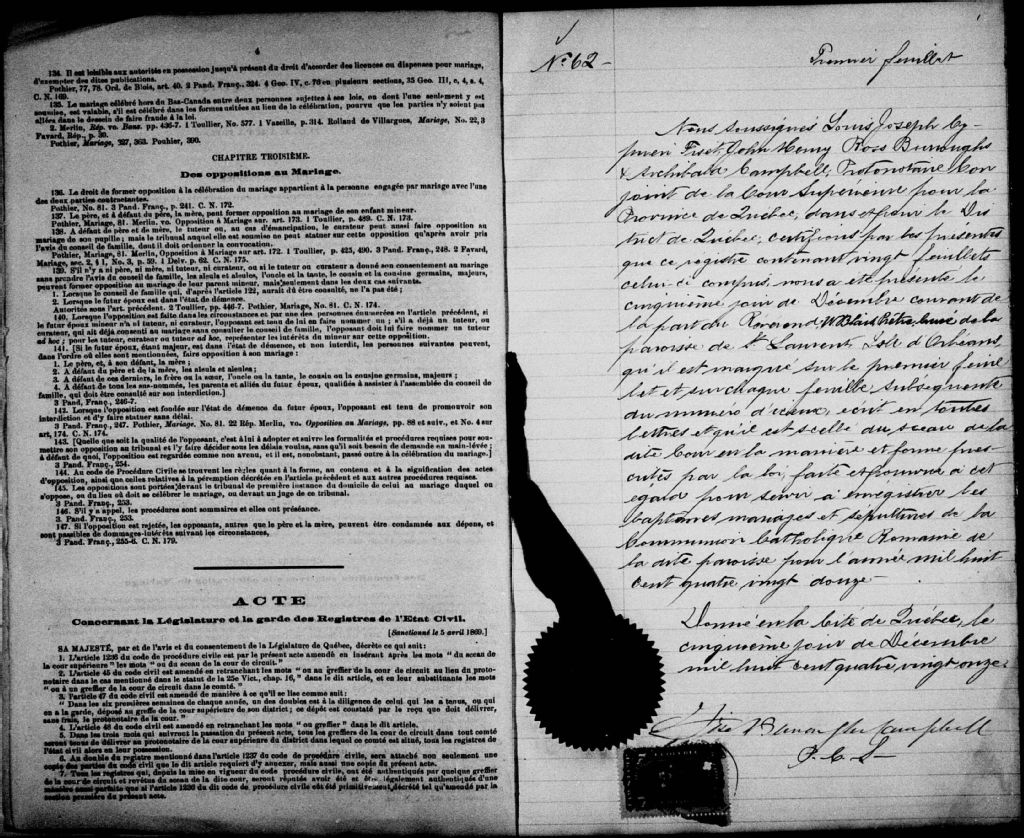 4
134. Il est loisible aux autorités en possession jusqu'à présent du droit d'accorder des licences ou dispenses pour mariage,
d'exempter des dites publications.
Pothier, 77, 78. Ord. de Blois, art. 40. 2 Pand. Franç. 324. 4 Geo. IV, c. 76 en plusieurs sections, 35 Geo. III, c, 4, s. 4,
C. N. 169.
135. Le mariage célébré hors du Bas-Canada entre deux personnes sujettes à ses lois, ou dont l'une seulement y est
soumise, est valable, s'il est célébré dans les formes usitées au lieu de la célébration, pourvu que les parties n'y soient pas
allées dans le dessein de faire fraude à la loi.
2. Merlin, Rép. vo. Bans. pp. 436-7. 1 Toullier, No. 577. 1 Vazeille, p. 314. Rolland de Villargues, Mariage, No. 22, 3
Favard, Rép., p. 39.
Pothier, Mariage, 327, 363. Pouhier, 390.
CHAPITRE TROISIÈME.
Des oppositions au Mariage.
136. Le droit de former opposition à la célébration du mariage appartient à la personne engagée par mariage avec l'une
des deux parties contractantes.
Pothier, No. 81. 3 Pand. Franç., p. 241. C. N. 172.
137. Le père, et à défaut du père, la mère, peut former opposition au mariage de son enfant mineur.
Pothier, Mariage, 81. Merlin, vo. Opposition à Mariage sur art. 173. 1 Toullier, p. 489. C. N. 173.
138. A défaut de père et de mère, le tuteur ou, au cas d'émancipation, le curateur peut aussi faire opposition au
mariage de son pupille; mais le tribunal auquel elle est soumise ne peut statuer sur cette opposition qu'après avoir pris
l'avis du conseil de famille, dont il doit ordonner la convocation.
Pothier, Mariage, 81. Merlin, Opposition à Mariage sur art. 172. 1 Toullier, p. 425, 490. 3 Pand. Franç., 248. 2 Favard,
Mariage, sec. 2, § 1, No. 3, p. 59. 1 Delv. p. 62. C. N. 175.
139. S'il n'y a ni père, ni mère, ni tuteur, ni curateur, ou si le tuteur ou curateur a donné son consentement au mariage
sans prendre l'avis du conseil de famille, les aïeuls et aïeules, l'oncle et la tante, le cousin et la cousine germains, majeurs,
peuvent former opposition au mariage de leur parent mineur, mais seulement dans les deux cas suivants.
1. Lorsque le conseil de famille qui, d'après l'article 122, aurait dû être consulté, ne l'a pas été;
2. Lorsque le futur époux est dans l'état de démence.
Autorités sous l'art. précédent. 2 Toullier, pp. 446-7. Pothier, Mariage, No. 81. C. N. 174.
140. Lorsque l'opposition est faite dans les circonstances et par une des personnes énumérées en l'article précédent, si
le futur époux mineur n'a ni tuteur, ni curateur, l'opposant est tenu de lui en faire nommer un; s'il a déjà un tuteur, ou
curateur, qui ait déjà consenti au mariage sans consulter le conseil de famille, l'opposant doit lui faire nommer un tuteur
ad hoc; pour les tuteur, curateur ou tuteur ad hoc, représenter les intérêts du mineur sur cette opposition.
141. [Si le futur époux, étant majeur, est dans l'état de démence, et non interdit, les personnes suivantes peuvent,
dans l'ordre où elles sont mentionnées, faire opposition à son mariage:
1. Le père, et, à son défaut, la mère;
2. A défaut du père et de la mère, les aïeuls et aïeules;
3. A défaut de ces derniers, le frère ou la sœur, l'oncle ou la tante, le cousin ou la cousine germains, majeurs;
4. A défaut de tous les sus-nommés, les parents et alliés du futur époux, qualifiés à assister à l'assemblée du conseil de
famille, qui doit être consulté sur son interdiction.]
3 Pand. Franç., 246-7.
142. Lorsque l'opposition est fondée sur l'état de démence du futur époux, l'opposant est tenu de promouvoir son
interdiction et d'y faire statuer sans délai.
3 Pand. Franç., 247. Pothier, Mariage. No. 81. 22 Rép. Merlin, vo. Opposition au Mariage, pp. 88 et suiv., et No. 4 sur
art, 174. C. N. 174.
143. [Quelle que soit la qualité de l'opposant, c'est à lui à adopter et suivre les formalités et procédures requises pour soumettre son opposition au tribunal et l'y faire décider sous les délais voulus, sans qu'il soit besoin de demande en main-levée;
à défaut de quoi, l'opposition est regardée comme non avenu, et il est, nonobstant, passé outre à la célébration du mariage.]
3 Pand. Franç., 254.
144. Au code de Procédure Civile se trouvent les règles quant à la forme, au contenu et à la signification des actes
d'opposition, ainsi que celles relatives à la péremption décrétée en l'article précédent et aux autres procédures requises.
145. Les oppositions sont portées devant le tribunal de première instance du domicile de celui au mariage duquel on
s'oppose, ou du lieu où doit se célébrer le mariage, ou devant un juge de ce tribunal.
3 Pand. Franç., 253.
146. S'il y a appel, les procédures sont sommaires et elles ont préséance.
3. Pand. Franç., 253.
147. Si l'opposition est rejetée, les opposants, autres que le père et la mère, peuvent être condamnés aux dépens, et
sont passibles de dommages-intérêts suivant les circonstances,
3 Pand. Franç., 255-6. C. N. 179.
ACTE
Concernant la Législature et la garde des Registres de l'Etat Civil.
[Sanctionné le 5 avril 1869.]
SA MAJESTÉ, par et de l'avis et du consentement de la Législature de Québec, décrète ce qui suit:
1. L'article 1236 du code de procédure civile est par le présent acte amendé en insérant après les mots "du sceau de
la cour supérieure" les mots "ou du sceau de la cour de circuit."
2. L'article 45 du code civil est amendé en retranchant les mots "ou au greffier de la cour de circuit au lieu du protonotaire dans le cas mentionné dans le statut de la 25e Vict., chap. 16," dans le dit article, et en leur substituant les mots
"ou à un greffier de la cour de circuit dans le comté."
3. l'article 47 du code civil est amendé de manière à ce qu'il se lise comme suit:
"Dans les six premières semaines de chaque année, un des doubles est à la diligence de celui qui les a tenus, ou qui
en a la garde, déposé au greffe de la cour supérieure de son district; ce dépôt est constaté par le reçu que doit délivrer,
sans frais, le protonotaire de la cour."
4. L'article 48 du code civil est amendé en retranchant les mots "ou greffier" dans le dit article.
5. Dans les trois mois qui suivront la passation du présent acte, tous les greffiers de la cour de circuit dans tout comté
seront tenus de délivrer au protonotaire de la cour supérieure du district dans lequel ce comté est situé, tous les registres de
l'état civil alors en leur possession.
6. Au double du registre mentionné dans l'article 1237 du code de procédure civile, sera attaché non seulement une
copie des parties du code civil que le dit article requiert d'y annexer, mais aussi une copie du présent acte.
7. Tous les registres qui, depuis la mise en vigueur du code procédure civile, ont été authentiqués par quelque greffier
de la cour de circuit et revêtus du sceau de la dite cour, seront réputés avoir été et être légalement authentiqués d'une
manière aussi parfaite que si l'article 1236 du dit code de procédure civile eût été primitivement décrété tel qu'amendé par la
section première du présent acte.
No. 62
Premier feuillet
Nous soussignés Louis Joseph Cyprien Fiset, John Henry Ross Burroughs
& Archibald Campbell, Protonotaire Conjoint de la Cour Supérieure pour la
Province de Québec, dans et pour le District de Québec, certifions par les présentes
que ce registre contenant vingt feuillets
celui-ci compris, nous a été présenté le
cinquième jour de Décembre courant de
la part du Révérend W Blais Ptre, curé de la
paroisse de St Laurent, Isle d'Orléans,
qu'il est marqué sur le premier feuillet et sur chaque feuille subséquente
du numéro d'iceux, écrit en toutes
lettres et qu'il est scellé du sceau de la
dite Cour en la manière et forme prescrites par la loi, faite et pourvue à cet
égard pour servir à enregistrer les
baptêmes mariages et sépultures de la
Communion Catholique Romaine de
la dite paroisse pour l'année mil huit
cent quatre vingt douze
Donné en la Cité de Québec, le
cinquième jour de Décembre
mil huit cent quatre vingt onze
Fiset Burroughs Campbell
P. C. S.